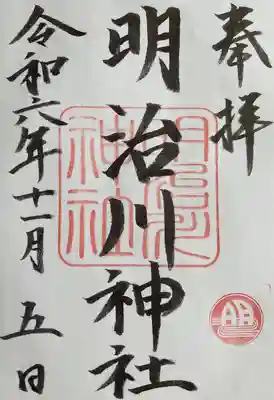 奉拝
明治川神社
明治川神社
令和六年十一月五日